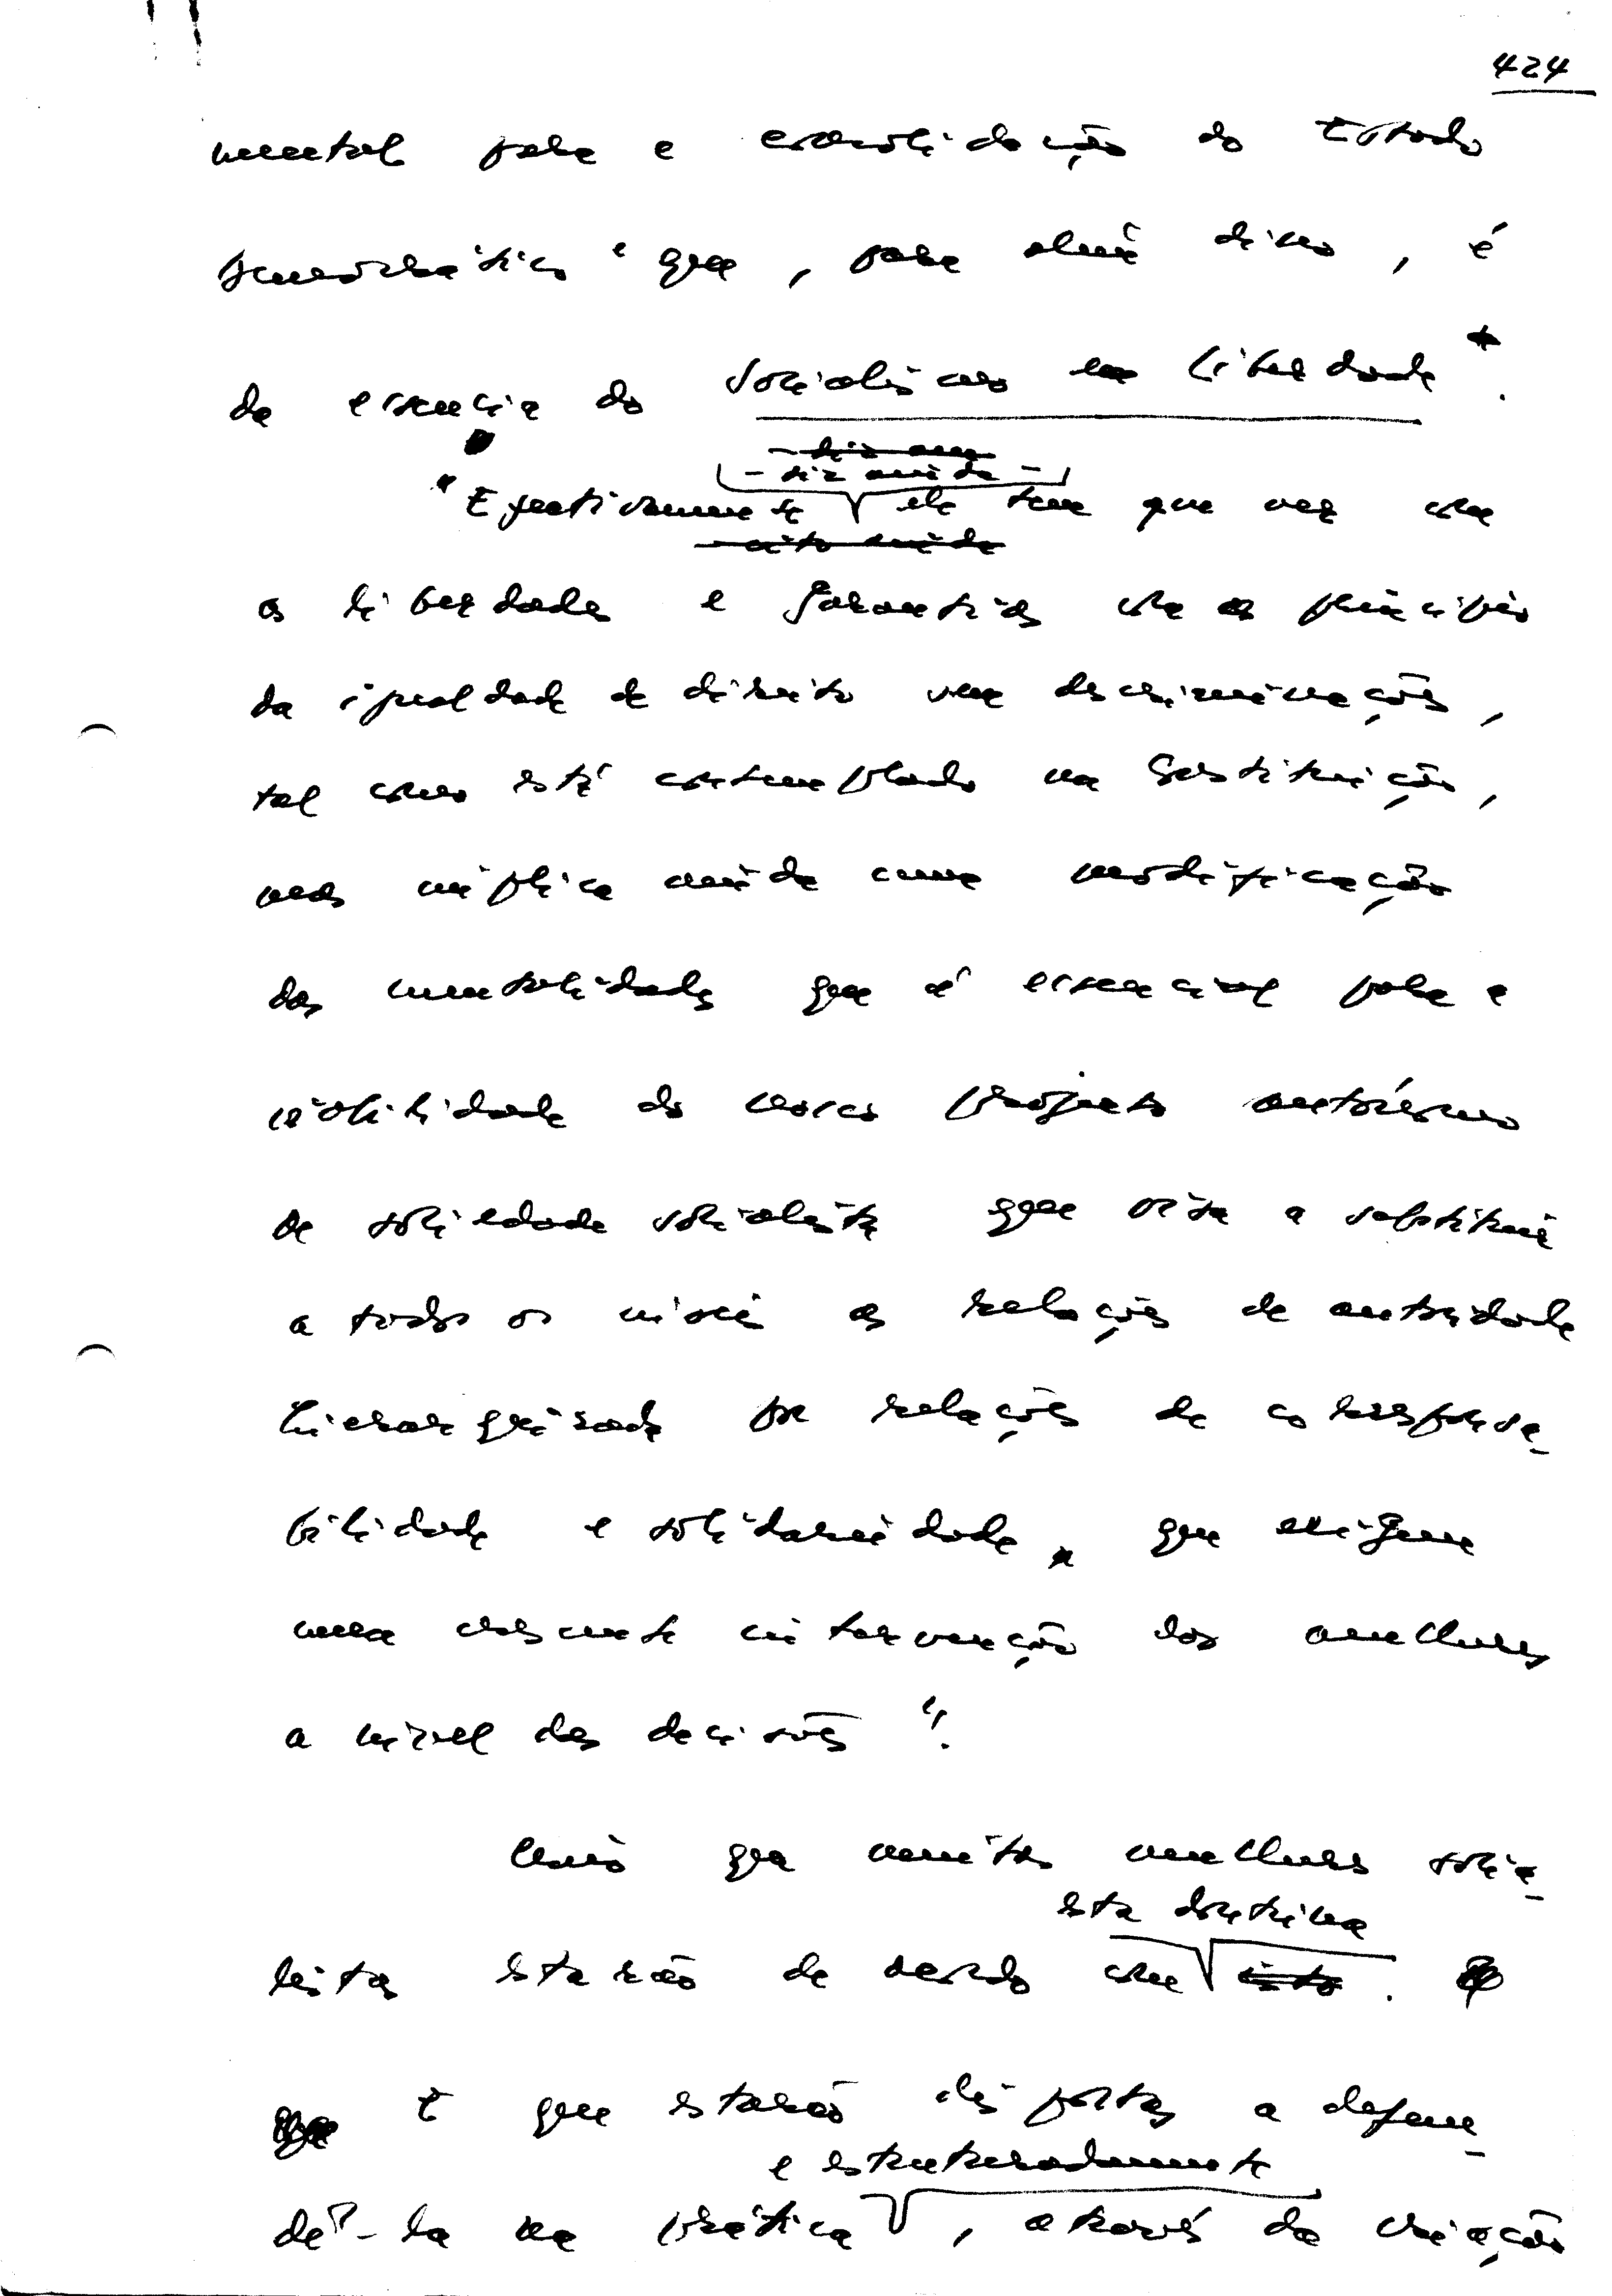 424
mental para a consolidação do Estado
democrático e que, para além disso, é
da essência do socialismo em liberdade".
- diz ainda -
"Efectivamente ele tem que ver com
as liberdades e garantias com os princípios
da igualdade de direito sem descriminações,
tal como está contemplado na Constituição,
mas implica ainda uma modificação
das mentalidades que é essencial para a
viabilidade do nosso projecto autónomo
de sociedade socialista que visa a substituir
a todos os níveis as relações de autoridade
hierarquizada por relações de corresponsa-
bilidade e solidariedade, que exigem
uma crescente intervenção das mulheres
a nível das decisões".
Creio que muitas mulheres socia-
esta doutrina
listas estarão de acordo com isto.
E que estarão dispostas a defen-
e estruturadamente
dê-la na prática, através da criação